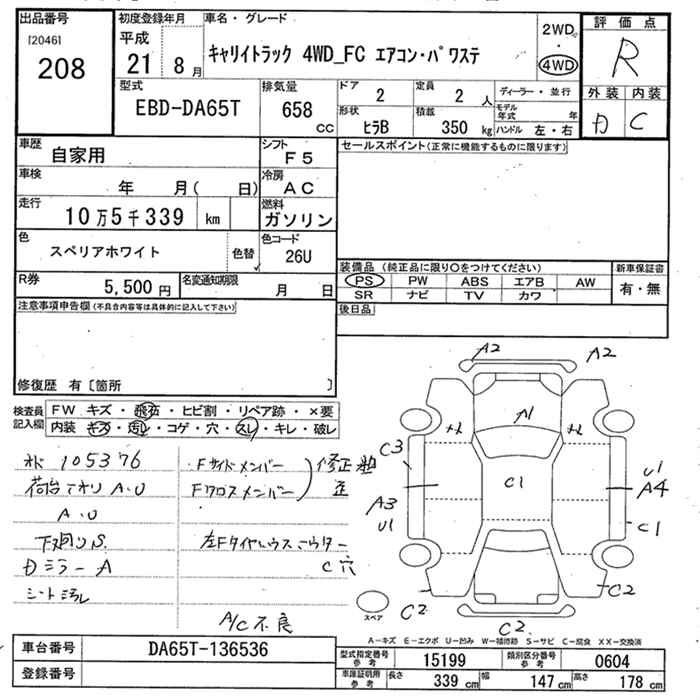 出品番号
[2046]
208
初度登録年月
平成
21 8 月
車名・グレード
キャリイトラック 4WD_FC エアコン・パワステ
2WD
・
4WD
評価点
R
外装 内装
D C
型式
EBD-DA65T
排気量
658 cc
ドア
2
定員
2 人
ディーラー・並行
モデル年式 年
形状
ヒラB
積載
350 kg
ハンドル 左・右
車歴
自家用
シフト
F5
セールスポイント(正常に機能するものに限ります)
車検
年 月( 日)
冷房
AC
走行
10万5千339 km
燃料
ガソリン
色
スペリアホワイト
色替
色コード
26U
R券
5,500 円
名変通知期限
月 日
装備品 (純正品に限り○をつけてください)
PS PW ABS エアB AW
SR ナビ TV カワ
新車保証書
有・無
後日品
注意事項申告欄(不具合内容等は具体的に記入して下さい)
修復歴 有〔箇所 〕
検査員記入欄
FW キズ・飛石・ヒビ割・リペア跡・×要
内装 キズ・汚レ・コゲ・穴・スレ・キレ・破レ
105376
荷台 A.U
A.U
下廻りS.
Dミラー A
Fサイドメンバー
Fクロスメンバー
修正
歪
C穴
A/C不良
A2
A2
A1
C3
C1
U1
A3
A4
U1
C1
C2
C2
C2
スペア
A-キズ E-エクボ U-凹み W-補修跡 S-サビ C-腐食 XX-交換済
車台番号
DA65T-136536
登録番号
型式指定番号 参考
15199
類別区分番号 参考
0604
車庫証明用 参考
長さ 339 cm 幅 147 cm 高さ 178 cm